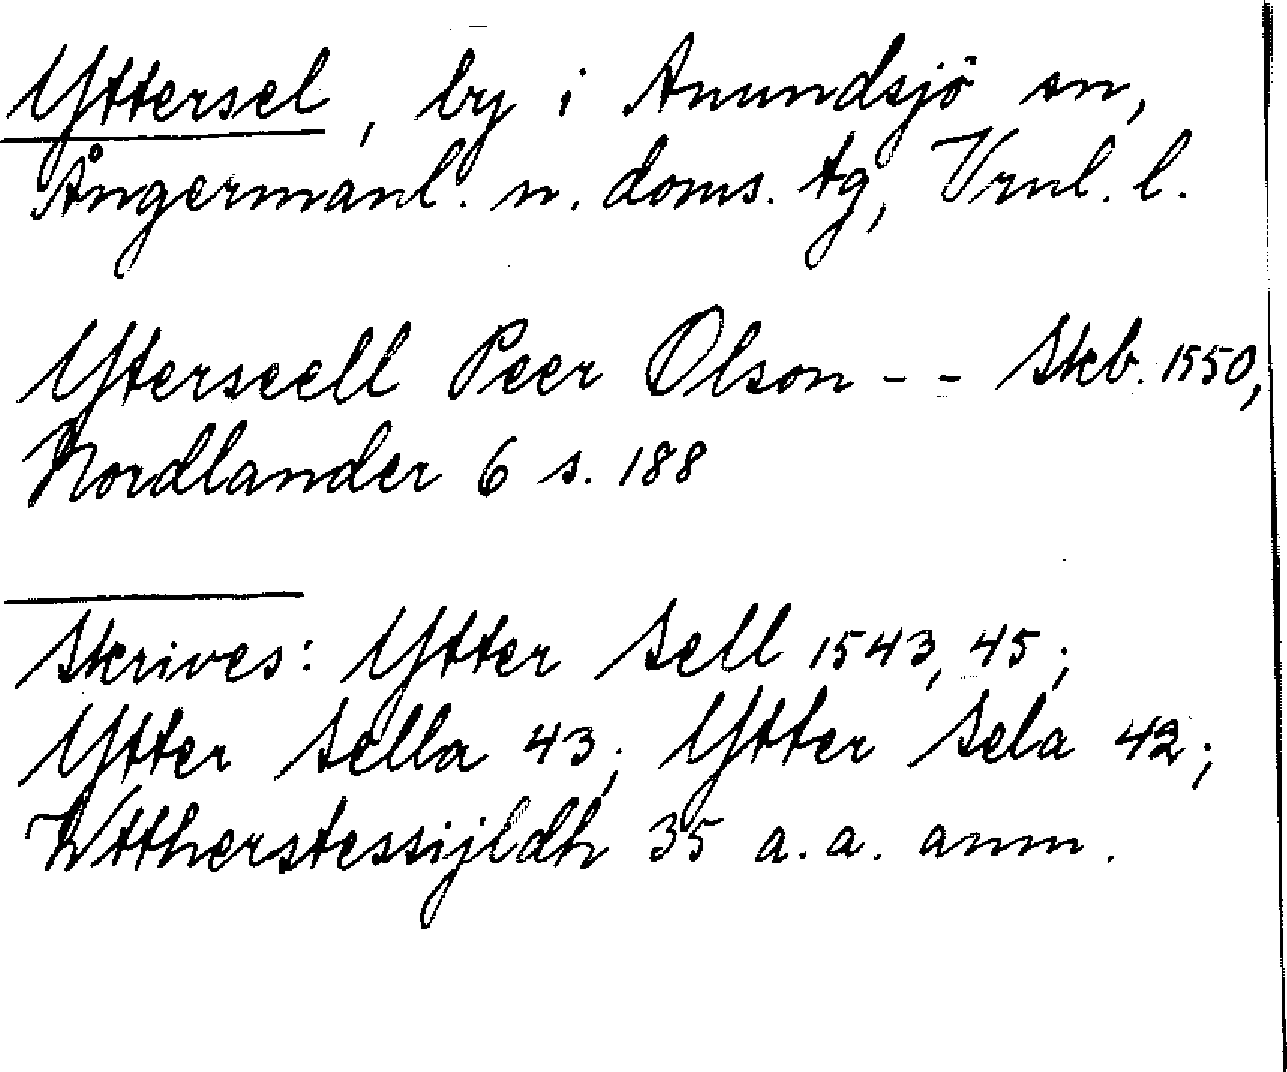 Yttersel, by i Anundsjö sn,
Ångermanl. n. doms. tg, Vrnl. l.
Yterseell Peer Olson - - Skb. 1550,
Nordlander 6 s. 188
Skrives: Ytter Sell 1543, 45;
Ytter Sella 43; Ytter Sela 42;
Wttherstessijldh 35 a. a. anm.